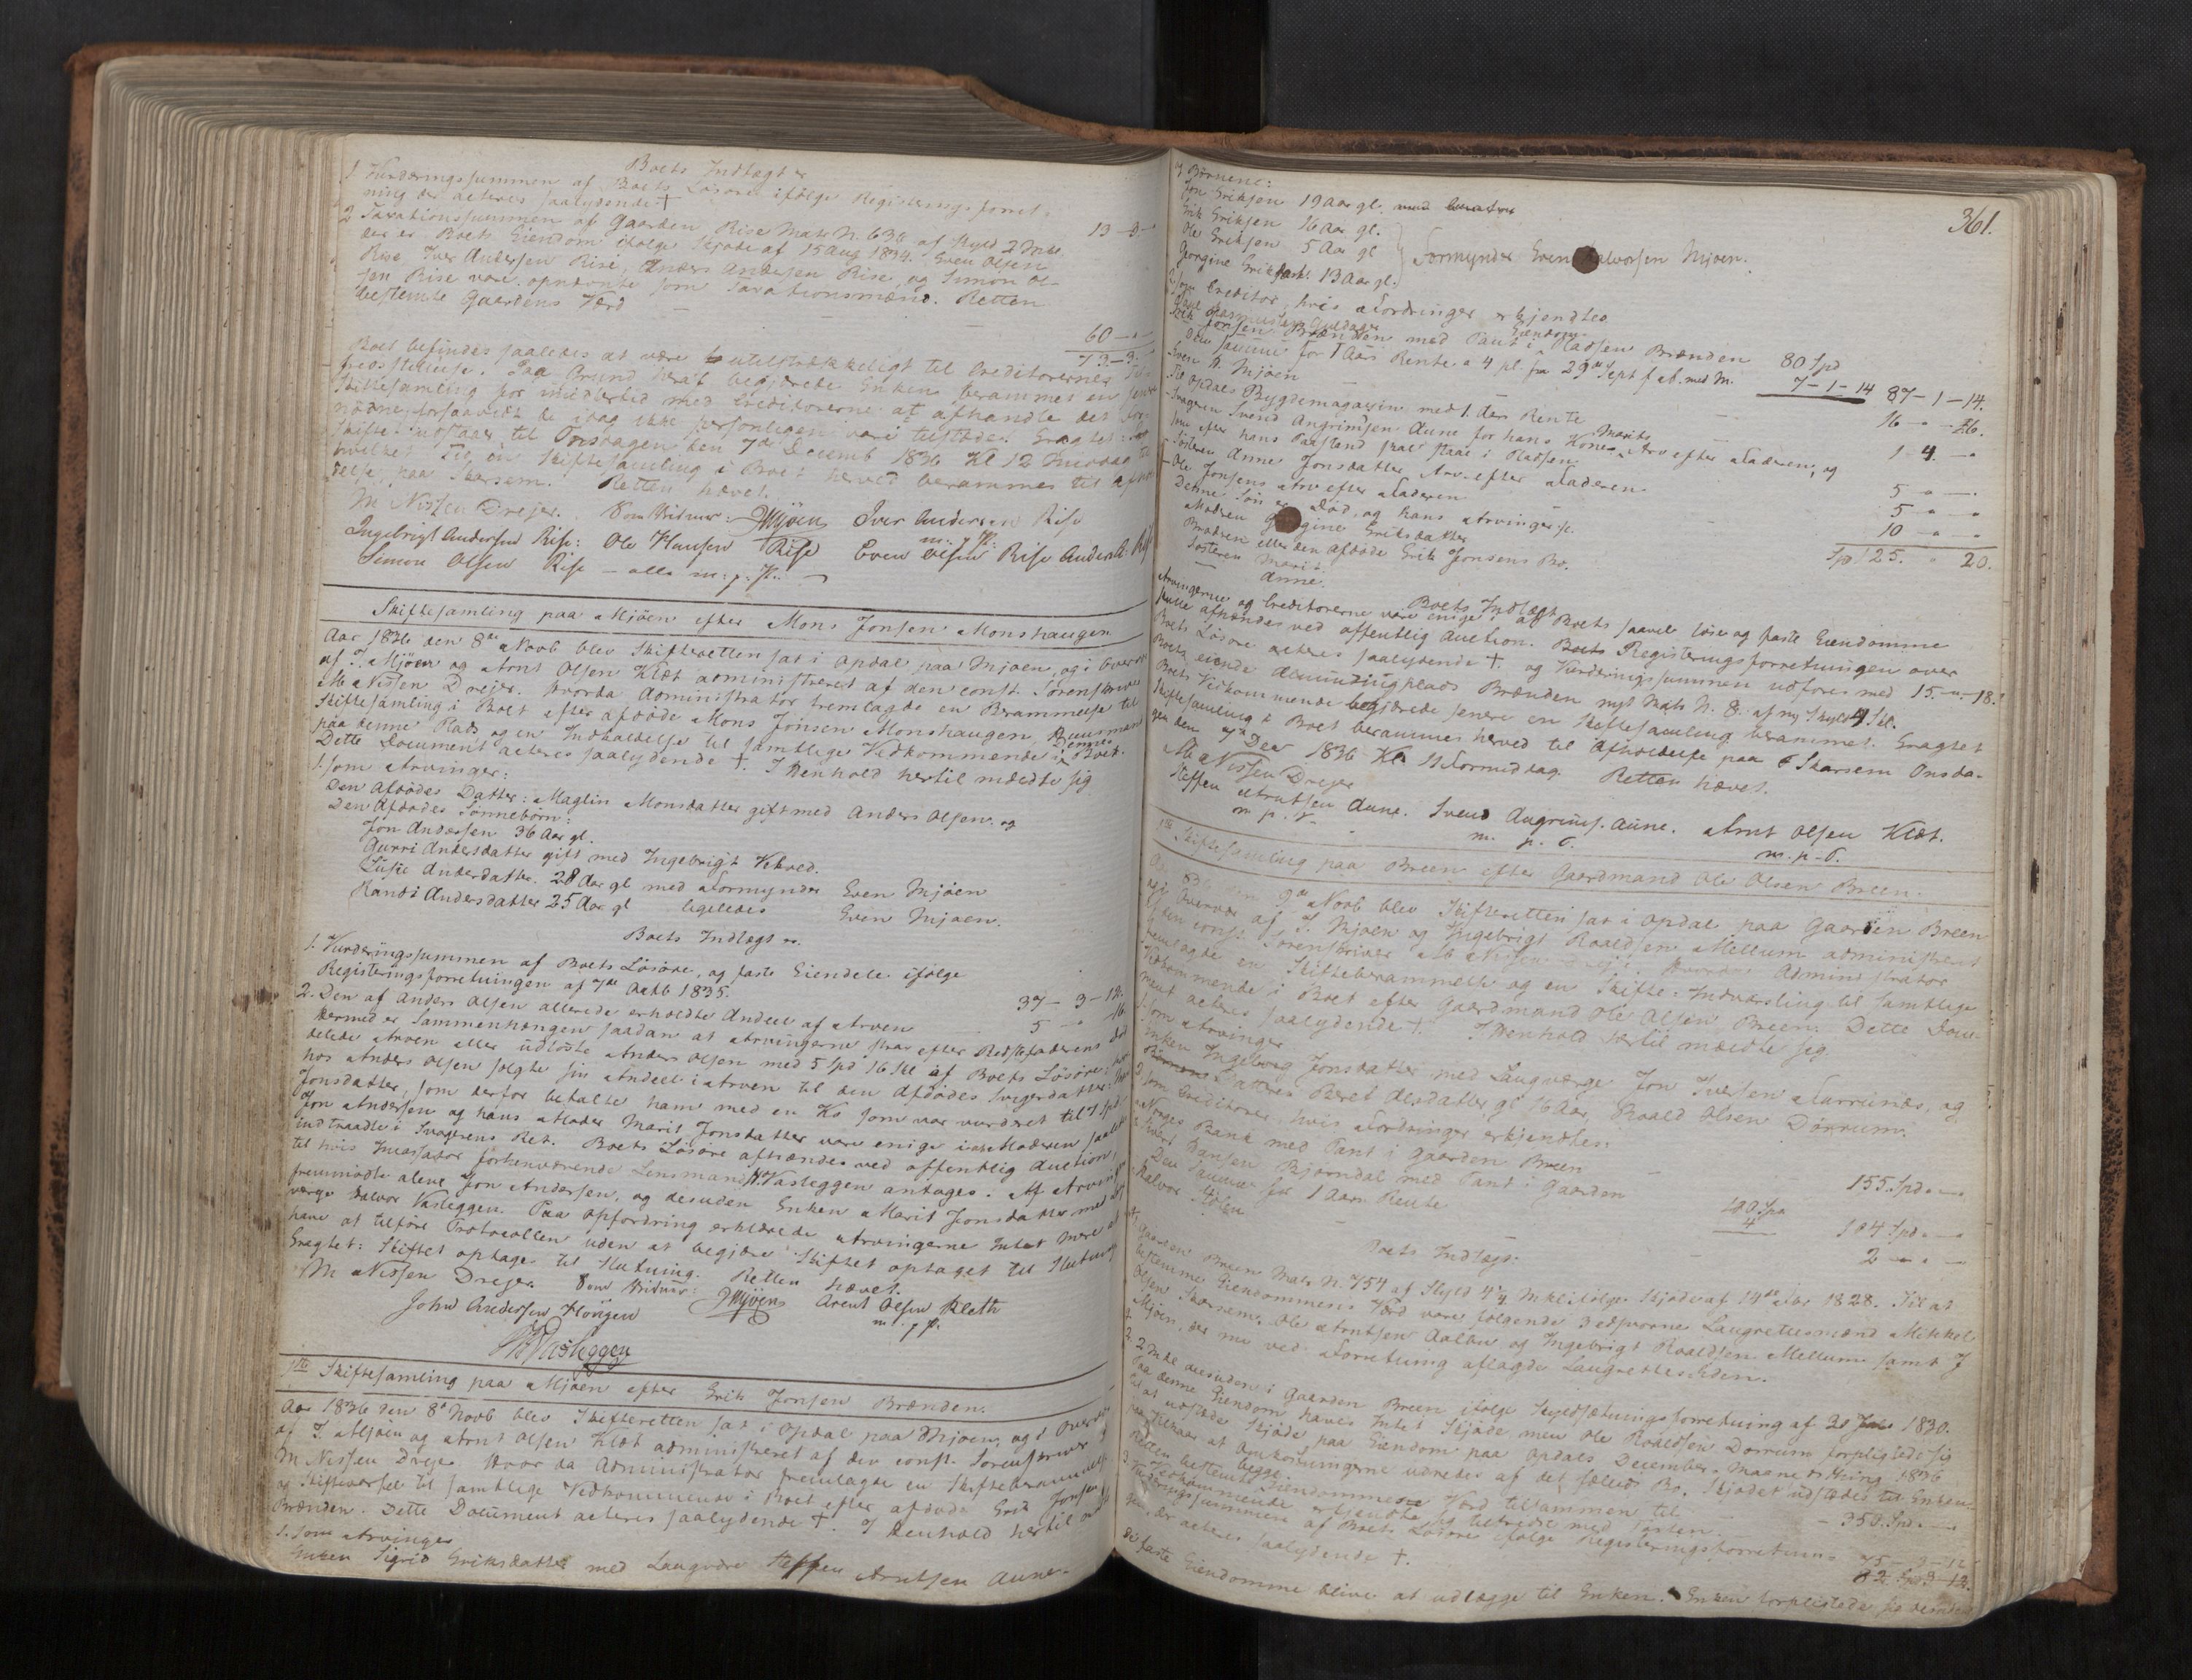 Boets Indtægt er
1 Vurderingssummen af Boets Løsøre ifølge Registeringsforret-
ning der acteres saalydende † 13-3-
2 Taxationssummen af Gaarden Rise Matr N. 636 af Skyld 2 Mkl.
der er Boets Eiendom ifølge Skjøde af 15 Aug 1834. Even Olsen
Rise Iver Andersen Rise, Anders Andersen Rise, og Simon Ol-
sen Rise vare opnævnte som Taxationsmænd. Retten
bestemte Gaardens Værd 60 - " -
73-3.
Boet befindes saaledes at være utilstrækkeligt til Creditorernes
fredsstillelse. Paa Grund heraf begjærede Enken berammet en
Skiftesamling for imidlertid med Creditorerne at afhandle det
nødne, forsaavidt de idag ikke personligen vare tilstæde. Eragtet:
Skiftet udstaaer til Onsdagen den 7de Decemb 1836 Kl 12 Middag
hvilket Tid en Skiftesamling i Boet herved berammes til
delse paa Skarsem. Retten hævet.
M Nissen Drejer. Som Vidner: JMjöen Iver Andersen Rise
Ingebrigt Andersen Rise: Ole Hansen Rise Even Olsen Rise Anders A: Rise
Simon Olsen Rise - alle m. p. P.
Skiftesamling paa Mjöen efter Mons Jonsen Monshaugen
Aar 1836 den 8de Novb blev Skifteretten sat i Opdal paa Mjoen, og i Overvær
af J. Mjöen og Arnt Olsen Klæt administreret af den const. Sorenskriver
M Nissen Drejer. Hvorda Administrator fremlagde en Berammelse til
Skiftesamling i Boet efter afdøde Mons Jonsen Monshaugen, Huusmand
paa denne Plads og en Indkaldelse til samtlige Vedkommende i Dennes Boet.
Dette Document acteres saalydende †. I Henhold hertil mældte sig
1. som Arvinger:
Den Afdødes Datter: Maglin Monsdatter gift med Anders Olsen. og
Den Afdødes Sønnebørn:
Jon Andersen 36 Aar gl.
Gurri Andersdatter gift med Ingebrigt Vekved.
Lusie Andersdatter. 28 Aar gl med Formynder Even Mjøen
Randi Andersdatter 25 Aar gl ligeledes Even Mjoen.
Boets Indtægt er.
1. Vurderingssummen af Boets Løsøre, og faste Eiendele ifølge
Registeringsforretningen af 7de Octb 1835. 37-3-12.
2. Den af Anders Olsen allerede erholdte Andeel af Arven 5 - " 16.
Hermed er Sammenhængen saadan at Arvingerne strax efter Bedstefaderens Død
deelede Arven eller udløste Anders Olsen med 5 Spd 16 Skl af Boets Løsøre;
hos Anders Olsen solgte sin Andeel i Arven til den Afdødes Svigerdatter
Jonsdatter, som derfor betalte ham med en Ko som var vurderet til 7 Spd
Jon Andersen og hans Moder Marit Jonsdatter vare enige i at Moderen
indtraadte i Svogerens Ret. Boets Løsøre afhændes ved offentlig Auction,
til hvis Incassator forhenværende Lensmand H. Vasleggen antages. Af
fremmødte alene Jon Andersen, og desuden Enken Marit Jonsdatter med
værge Halvor Vasleggen. Paa Opfordring erklærede Arvingerne Intet mere at
have at tilføre Protocollen uden at begjære Skiftet optaget til Slutning
Eragtet: Skiftet optages til Slutning. Retten hævet.
M Nissen Drejer. Som Vidner: JMjöen Arent Olsen Kleth
John Andersen m. p. P.
HVasleggen
1ste Skiftesamling paa Mjöen efter Erik Jonsen Brænden.
Aar 1836 den 8de Novb blev Skifteretten sat i Opdal paa Mjoen, og i Overvær
af J. Mjöen og Arnt Olsen Klæt administreret af den const. Sorenskriver
M Nissen Drejer. Hvor da Administrator fremlagde en Skifteberammelse
og Skiftevarsel til samtlige Vedkommende i Boet efter afdøde Erik Jonsen
Brænden. Dette Document acteres saalydende †. I Henhold hertil
1. som Arvinger
Enken Sigrid Eriksdatter med Laugværge Steffen Arntsen Aune.
361.
Børnene:
Jon Eriksen 19 Aar gl. med Curator
Erik Eriksen 16 Aar gl.
Ole Eriksen 5 Aar gl
Georgine Eriksdat. 13 Aar gl. Formynder Even Halvorsen Mjoen.
2 som Creditor, hvis Fordringer erkjendtes
Jonsen Brænden med Pant i Eiendom Pladsen Brænden 80 Spd
Den samme for 1 Aars Rente a 4 pC. fra 29de Sept f. A. med M. 7-1-14 87-1-14.
Even H. Mjöen 16 - " - 26.
Opdals Bygdemagasin med 1 Aars Rente 1-4. - "
Svogeren Svend Angrimsen Aune for hans Kones Marits Arv efter Faderen, og
som efter hans Paastand skal staae i Pladsen. 5 " - .
Søsteren Anne Jonsdatter Arv efter Faderen 5 " - "
Ole Jonsens Arv efter Faderen 10 - " - "
Denne Søn er død, og hans Arvinger ere. Sp 125. " 20.
Moderen Georgine Eriksdatter
Broderen eller den afdøde Erik Jonsens Bo.
Søsteren Marit.
— Anne.
Boets Indtægt
Arvingerne og Creditorerne vare enige i at Boets saavel løse og faste Eiendomme
skulle afhændes ved offentlig Auction. Boets Registeringsforretningen over
Boets Løsøre acteres saalydende †. og Vurderingssummen udføres med 15.-"-18.
Boets eiende Rydningplads Brænden nyt Matr N. 8. af ny Skyld 4 Skl.
Boets Vedkommende begjærede senere en Skiftesamling berammet. Eragtet
Skiftesamling i Boet berammes herved til Afholdelse paa Skarsem Onsda-
gen den 7de Decr 1836 Kl 11 Formiddag. Retten hævet.
M Nissen Drejer
Steffen Arntsen Aune. Svend Angrims. Aune. Arnt Olsen Klæt.
m. p. P. m. p. P. m. p. P.
1ste Skiftesamling paa Breen efter Gaardmand Ole Olsen Breen.
9de Novb blev Skifteretten sat i Opdal paa Gaarden Breen
og i Overvær af J. Mjoen og Ingebrigt Roaldsen Mellum administreret
af den const. Sorenskriver M Nissen Drejer. Hvorda Administrator
fremlagde en Skifteberammelse og en Skifte-Indvarsling til samtlige
Vedkommende i Boet efter Gaardmand Ole Olsen Breen. Dette Docu-
ment acteres saalydende †. I Henhold hertil mældte sig.
1. som Arvinger
Enken Ingeborg Jonsdatter med Laugværge Jon Iversen og
Datteren Beret Olsdatter gl 16 Aar, Roald Olsen Dørrum.
2. som Creditorer, hvis Fordringer erkjendtes:
Norges Bank med Pant i Gaarden Breen 155 Spd. " -
Hansen Bjørndal med Pant i Gaarden 100 Spd
Den samme for 1 Aars Rente 4 104 Spd. -
Halvor Stølen 2 - " -
Boets Indtægt.
1. Gaarden Breen Matr N. 754 af Skyld 4 1/4 Mkl ifølge Skjøde af 14de Febr 1828. Til at
bestemme Eiendommens Værd vare følgende 3 edsvorne Laugrettesmænd Mikkel
Olsen Skarsem, Ole Arntsen Aalbu og Ingebrigt Roaldsen Mellum samt J
Mjöen, der nu ved Forretning aflagde Laugretteseden.
2. 2 Mkl desuden i Gaarden Breen ifølge Skyldsætningsforretning af 1830.
Paa denne Eiendom haves intet Skjøde men Ole Roaldsen Dørrum forpligtede sig
til at udstæde Skjøde paa Eiendom paa Opdals December Maaneds Thing 1836
paa Vilkaar at Omkostningerne udredes af det fælleds Bo. Skjødet udstædes til Enken.
Retten bestemte begge Eiendommenes Værd tilsammen til - 350 Spd. -
Vedkommende erkjendte sig tilfreds med Taxten.
3. Vurderingssummen af Boets Løsøre ifølge Registeringsforretnin-
gen, der acteres saalydende †. 75-3-12
De faste Eiendomme blive at udlægge til Enken. Enken forpligtede sig desuden